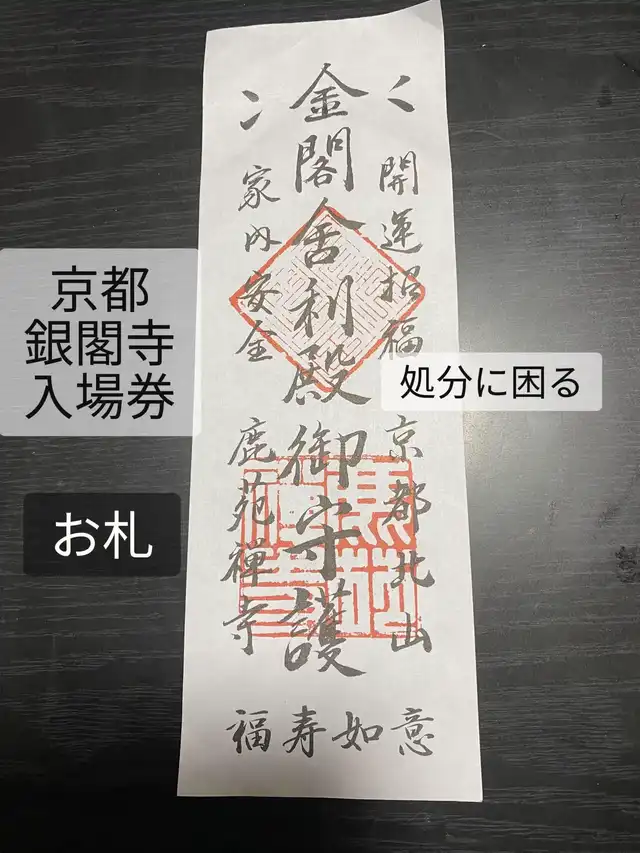 開運招福
京都北山
金閣舎利殿御守護
家内安全
鹿苑禅寺
福寿如意
京都
銀閣寺
入場券
処分に困る
お札